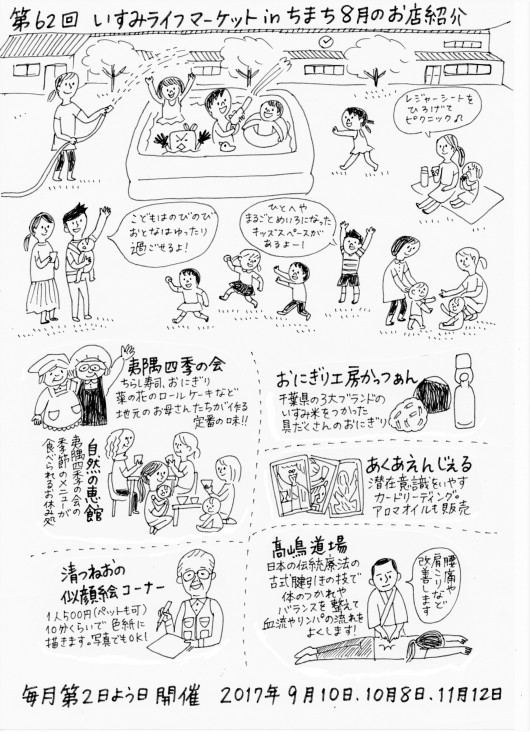 第62回 いすみライフマーケット in ちまち 8月のお店紹介
レジャーシートを
ひろげて
ピクニック♪
こどもはのびのび
おとなはゆったり
過ごせるよ!
ひとへや
まるごとめいろになった
キッズスペースが
あるよー!
夷隅四季の会
ちらし寿司、おにぎり
菜の花のロールケーキなど
地元のお母さんたちが作る
定番の味!!
おにぎり工房かっつぁん
千葉県の3大ブランドの
いすみ米をつかった
具だくさんのおにぎり
自然の恵館
夷隅四季の会の
季節のメニューが
食べられるお休み処
あくあえんじぇる
潜在意識をいやす
カードリーディング。
アロマオイルも販売
清つねおの
似顔絵コーナー
1人500円(ペットも可)
10分くらいで色紙に
描きます。写真でもOK!
髙嶋道場
日本の伝統療法の
古式腱引きの技で
体のつかれや
バランスを整えて
血流やリンパの流れを
よくします!
腰痛や
肩こりなど
改善します
毎月第2日よう日開催 2017年9月10日、10月8日、11月12日